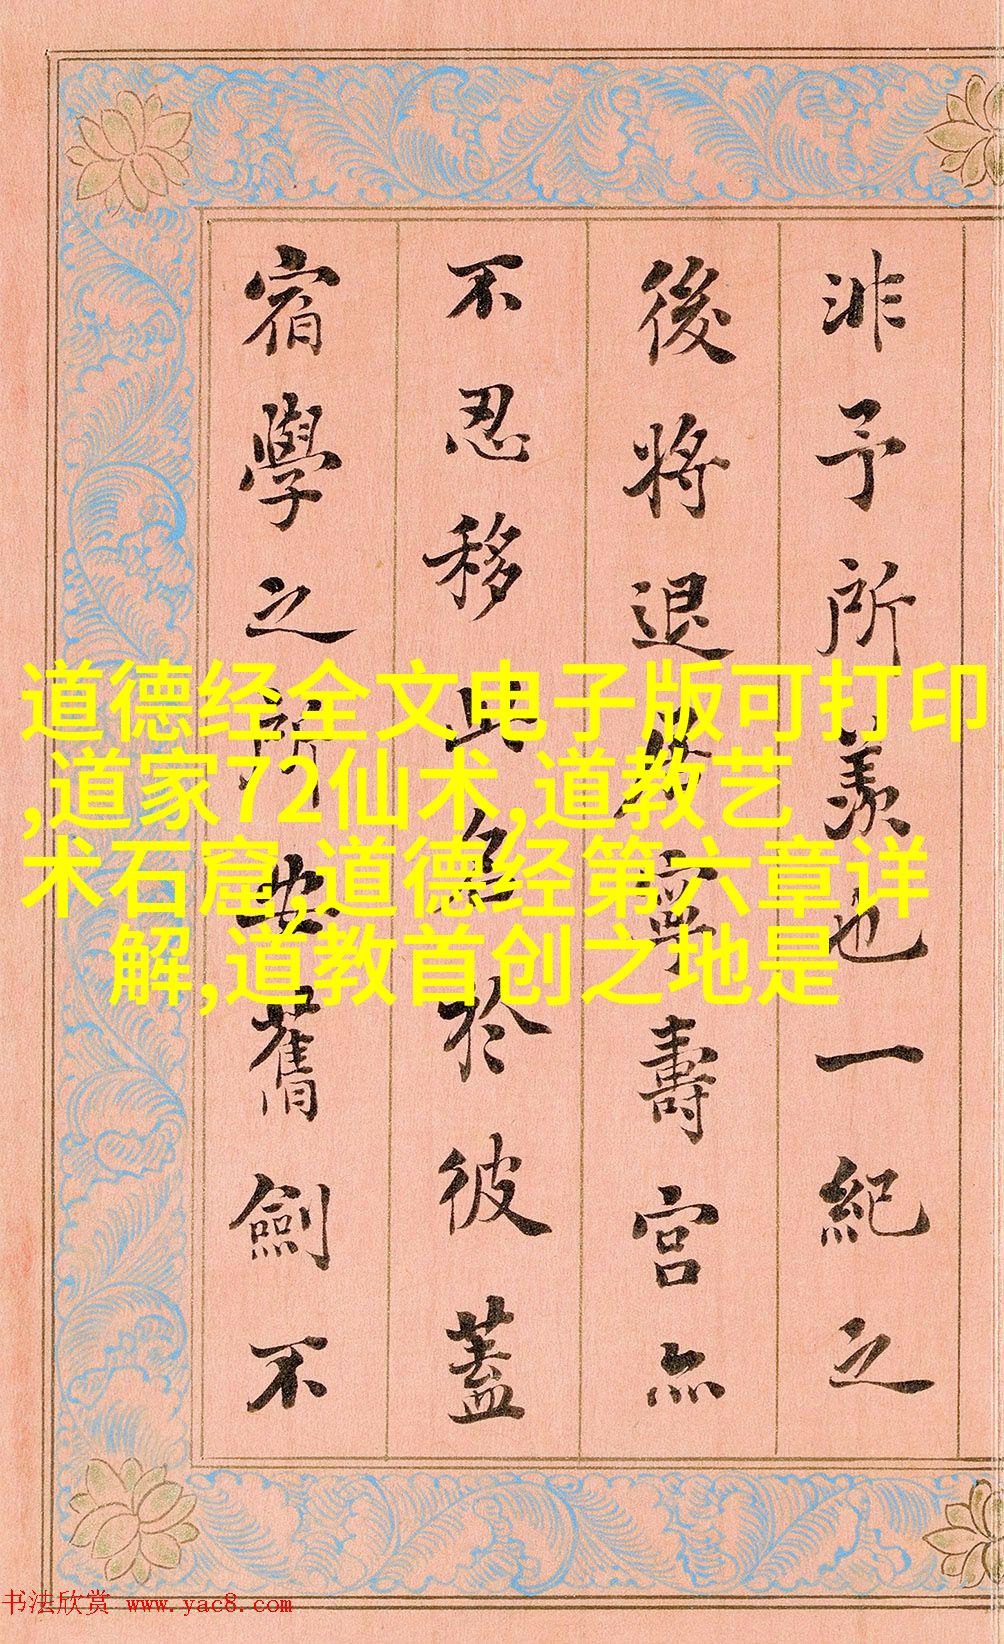 非予所羨也一紀之
後將退寧壽宮亦
不忍移此於彼蓋
宿學之所舊劍不
道德经全文电子版可打印
,道家72仙术,道教艺
术石窟,道德经第六章详
解,道教首创之地是
书法欣赏 www.yac8.com